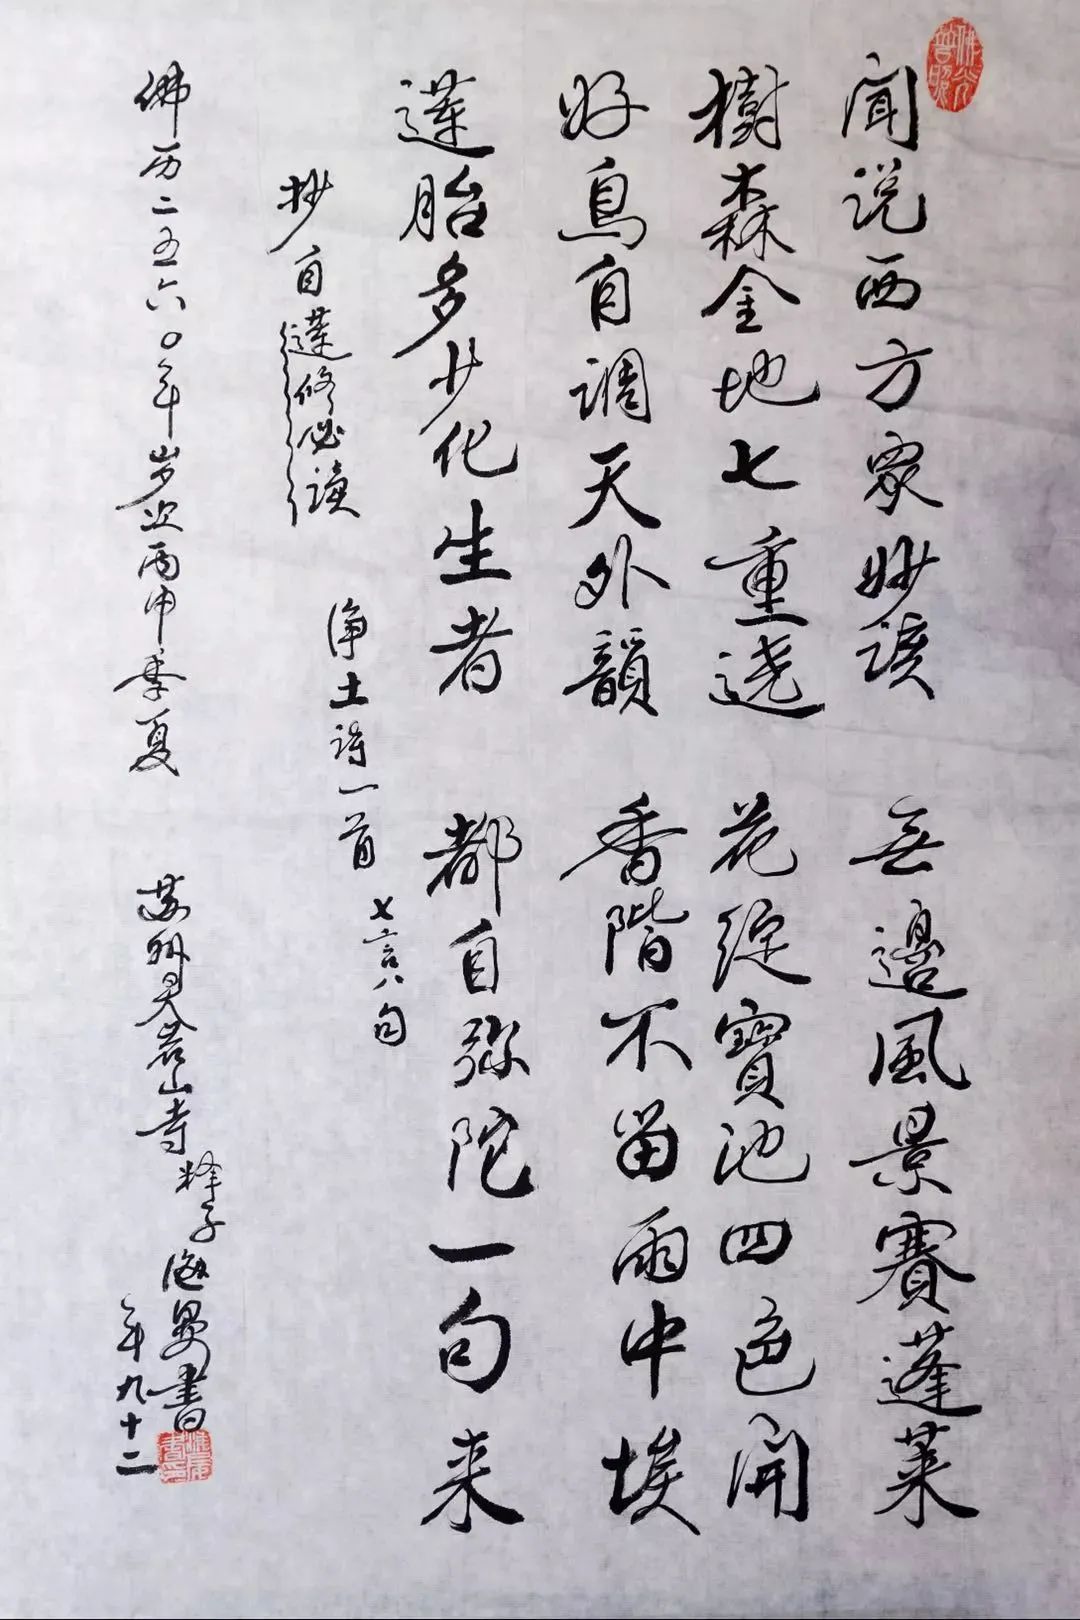 闻说西方眾妙诶 无邊風景賽蓬莱
樹森金地七重遶 花綻寶池四色開
好鳥自调天外韻 香階不留雨中埃
蓮胎多少化生者 都自弥陀一句来
抄自蓮修必读 净土诗一首 七言八句
佛历二五六〇年岁次丙申季夏 苏州天 山寺 释子 海 書
年九十二
佛光普照